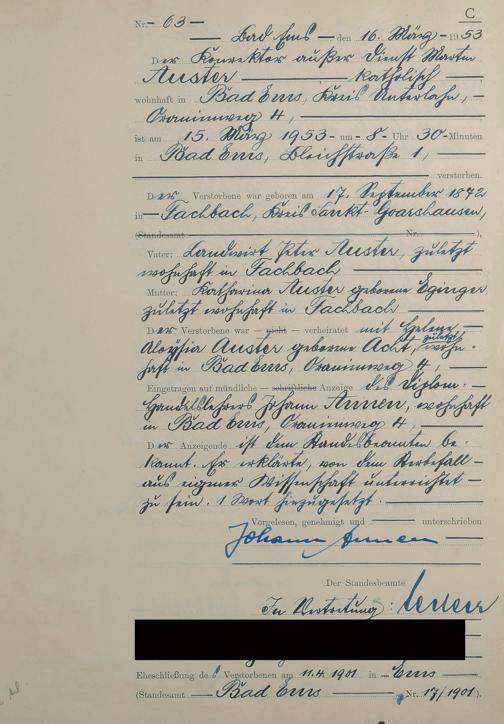 C
Nr. 63
Bad Ems, den 16. März 1953
Der Konrektor außer Dienst Martin
Auster katholisch
wohnhaft in Bad Ems, Kreis Unterlahn,
Oranienweg 4,
ist am 15. März 1953 um 8 Uhr 30 Minuten
in Bad Ems, Bleichstraße 1,
verstorben.
Der Verstorbene war geboren am 17. September 1872
in Fachbach, Kreis Sankt-Goarshausen,
(Standesamt Nr. ),
Vater: Landwirt Peter Auster, zuletzt
wohnhaft in Fachbach
Mutter: Katharina Auster geborene Eginger
zuletzt wohnhaft in Fachbach
Der Verstorbene war nicht verheiratet mit Helene
Aloysia Auster geborene Acht, zuletzt wohn-
haft in Bad Ems, Oranienweg 4,
Eingetragen auf mündliche schriftliche Anzeige des Diplom-
Handelslehrers Johann Annen, wohnhaft
in Bad Ems, Oranienweg 4,
Der Anzeigende ist dem Standesbeamten be-
kannt. Er erklärte, von dem Sterbefall
aus eigener Wissenschaft unterrichtet
zu sein. 1 Wort hinzugesetzt.
Vorgelesen, genehmigt und unterschrieben
Johann Annen
Der Standesbeamte
In Vertretung:
Eheschließung des Verstorbenen am 11.4.1901 in Ems
(Standesamt Bad Ems Nr. 17/1901).